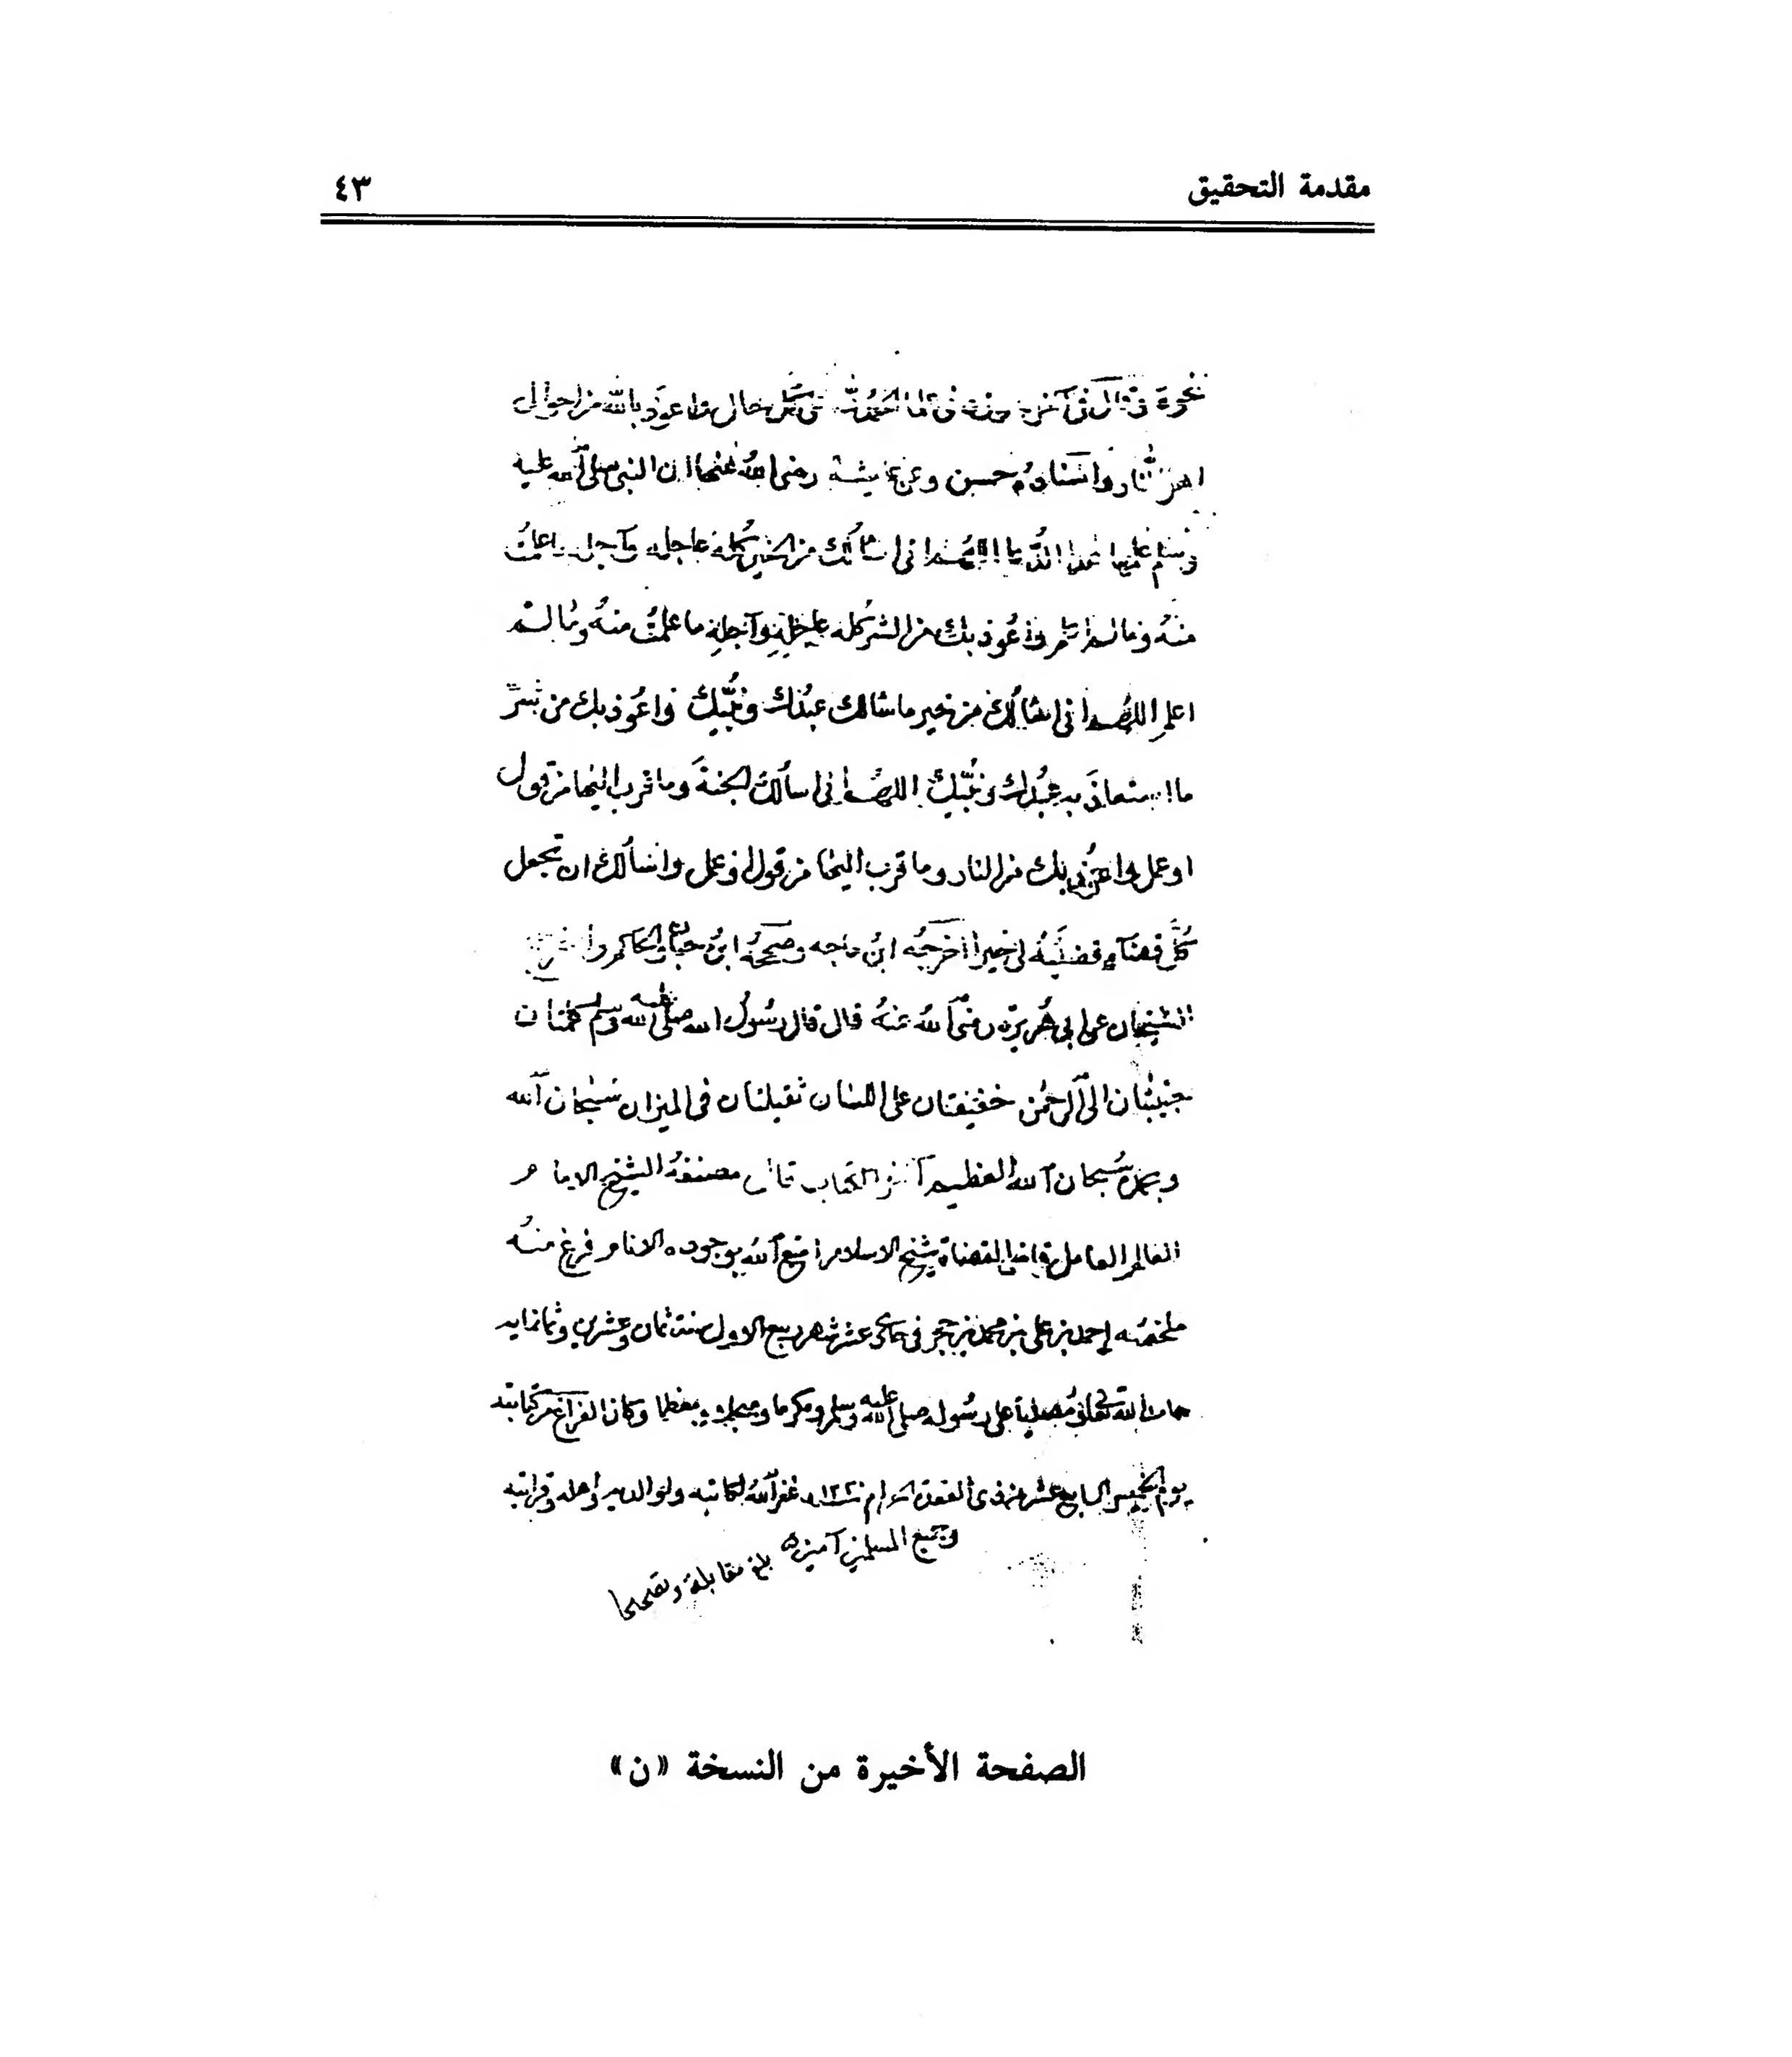 مقدمة التحقيق ٤٣
نحوه وقال في آخره الحمد لله على كل حال واعوذ بالله من احوال
اهل النار واسناده حسن وعن عائشة رضى الله عنها ان النبى صلى الله عليه
وسلم علمها هذا الدعا اللهم انى اسألك من الخير كله عاجله وآجله ما علمتُ
منهُ وما لم اعلم واعُوذ بك من الشر كله عاجلِهِ وآجلِهِ ما علمتُ منهُ ومَا لم
اعلم اللهُم انى اسْألك من خير ما سَالك عبدُك ونبيُّك واعُوذ بك من شرّ
ما استعاذَ به عبدُك ونبيُّك اللهُم انى اسألك الجنةَ وما قرب اليها من قول
او عمل واعوُذ بك من النار وما قرب اليها من قول او عمل واسألك ان تجعل
كلَّ قضآءٍ قضيتَهُ لى خيرا اخرجَهُ ابنُ ماجه وصححهُ ابنُ حبان والحاكم واخرج
الشيخان عن ابى هُريرة رضى الله عنهُ قال قال رسُولُ الله صلى الله عليه وسلم كلمتان
حبيبتان الى الرحمٰن خفيفتان على اللسان ثقيلتان فى الميزان سُبحان الله
وبحمده سُبحان الله العظيم آخر الكتاب قال مصنفهُ الشيخ الامام
العالم العامل قاضى القضاة شيخ الاسلام امتع الله بوجوده الانام فرغ منهُ
ملخصه احمد بن على بن محمد بن حجر فى حادى عشر شهر ربيع الاول سنة ثمان وعشرين وثمانمايه
حامدا لله تعالى ومُصليا على رسُوله صلى الله عليه وسلم ومكرما ومبجلا ومعظما وكان الفراغ من كتابته
يوم الخميس السابع عشر من ذى القعدة الحرام غفر الله لكاتبه ولوالديه واهله وقرابته
وجميع المسلمين آمين بلغ مقابلة وتصحيحا
الصفحة الأخيرة من النسخة «ن»